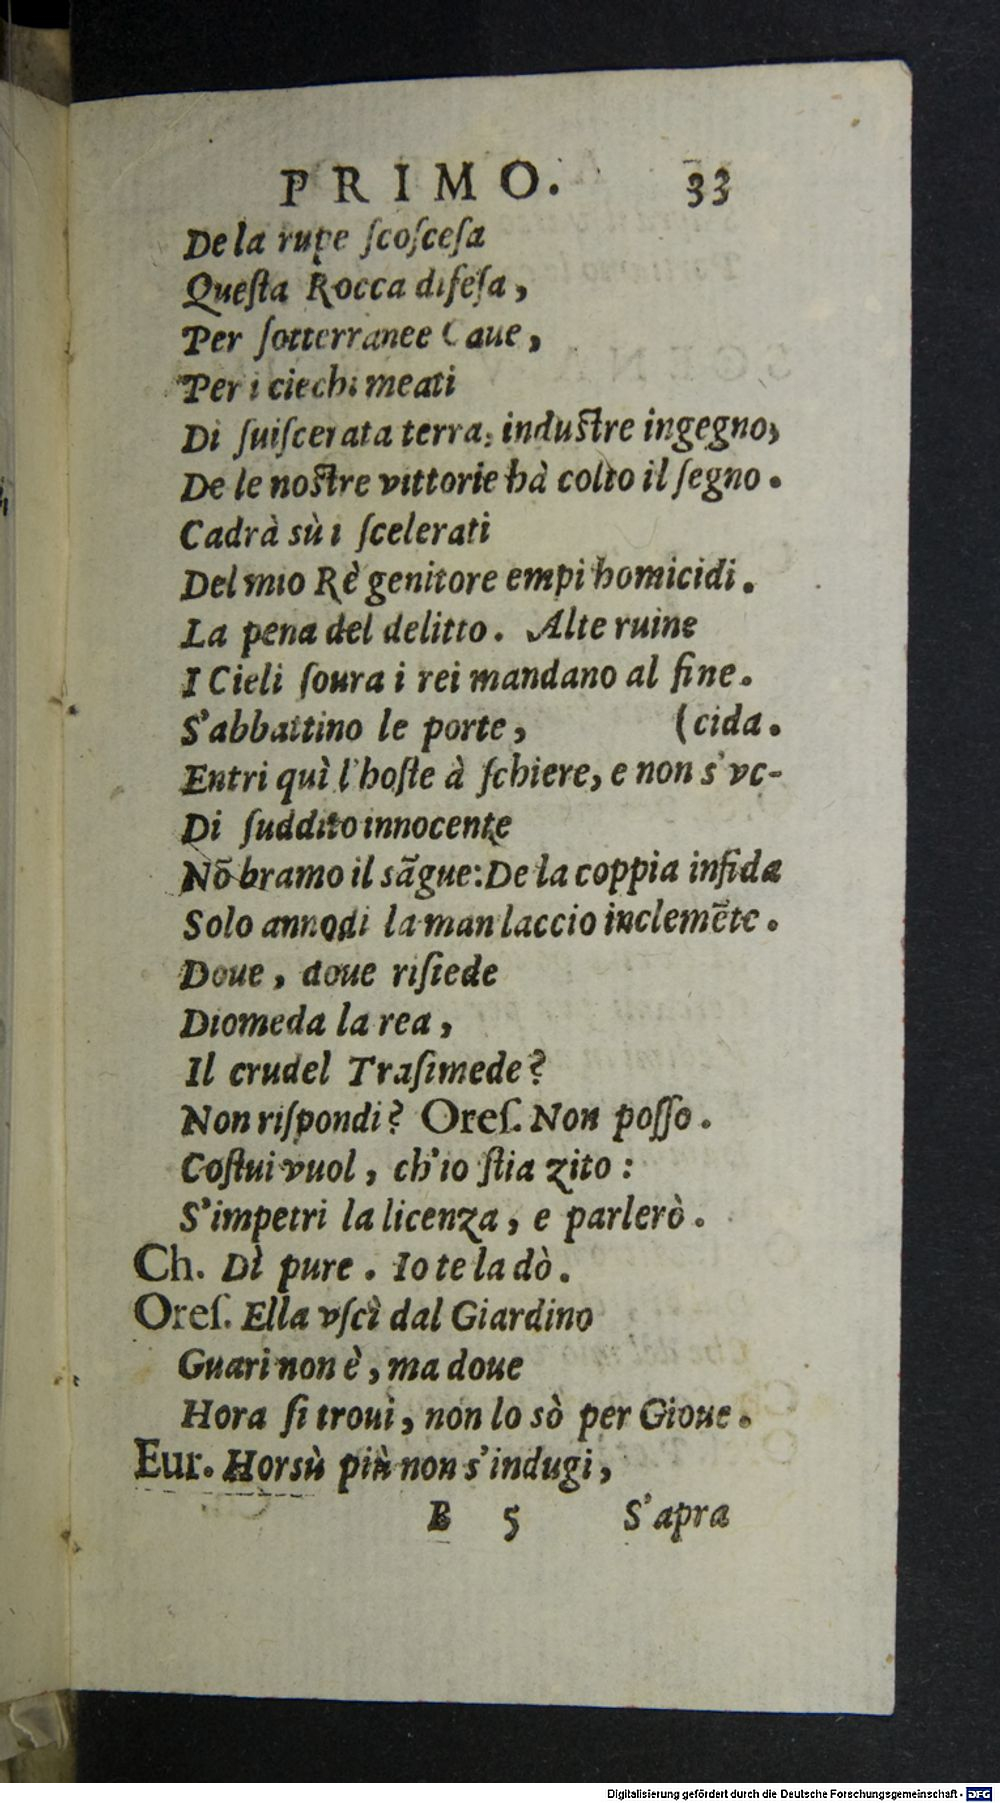 PRIMO. 33
De la rupe ſcoſceſa
Queſta Rocca difeſa,
Per ſotterranee Caue,
Per i ciechi meati
Di ſuiſcerata terra, induſtre ingegno,
De le noſtre vittorie hà colto il ſegno.
Cadrà sù i ſcelerati
Del mio Rè genitore empi homicidi.
La pena del delitto. Alte ruine
I Cieli ſoura i rei mandano al fine.
S'abbattino le porte, (cida.
Entri quì l'hoſte à ſchiere, e non s'vc-
Di ſuddito innocente
Nõ bramo il sãgue: De la coppia infida
Solo annodi la man laccio inclemẽte.
Doue, doue riſiede
Diomeda la rea,
Il crudel Traſimede?
Non riſpondi? Oreſ. Non poſſo.
Coſtui vuol, ch'io ſtia zito:
S'impetri la licenza, e parlerò.
Ch. Dì pure. Io te la dò.
Oreſ. Ella vſcì dal Giardino
Guari non è, ma doue
Hora ſi troui, non lo sò per Gioue.
Eur. Horsù più non s'indugi,
B 5 S'apra
Digitalisierung gefördert durch die Deutsche Forschungsgemeinschaft - DFG